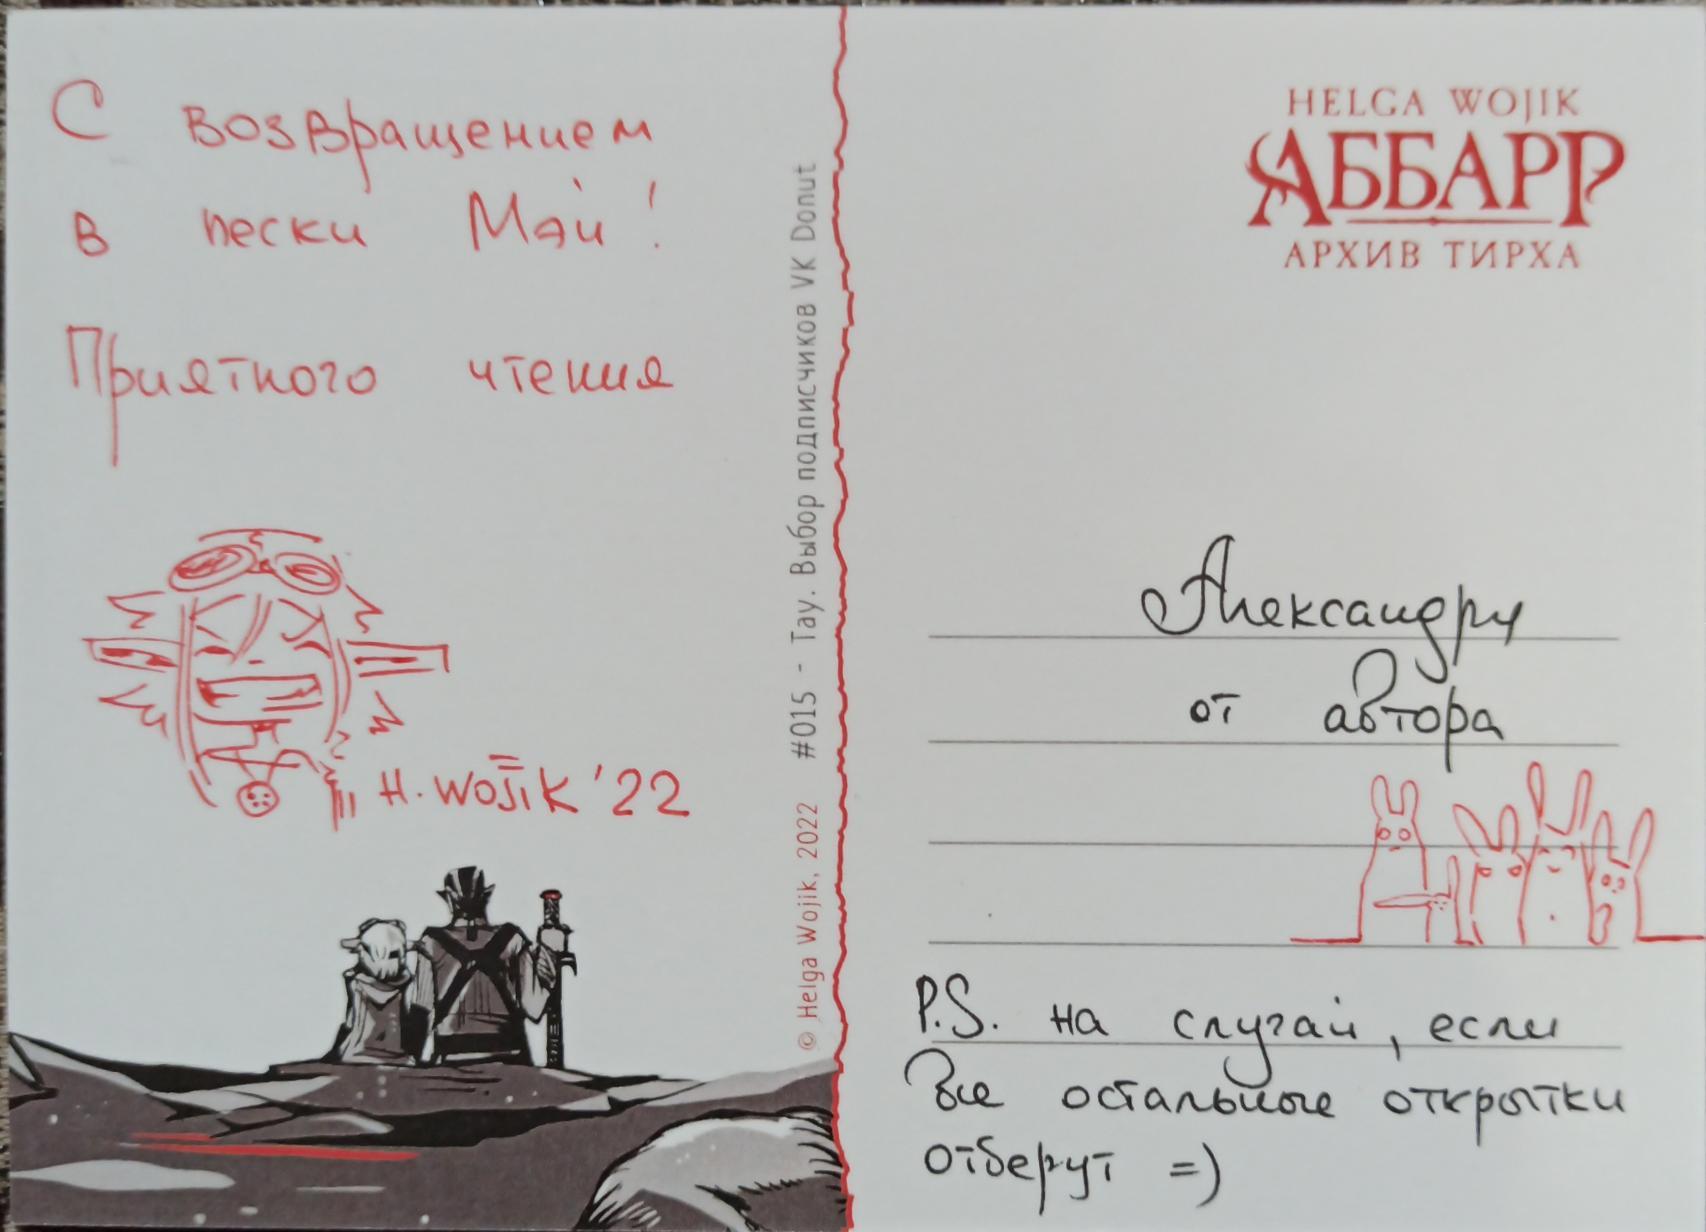 С возвращением
в пески Мэй!
Приятного чтения
H. WOJIK '22
© Helga Wojik, 2022 #015 - Тау. Выбор подписчиков VK Donut
HELGA WOJIK
АББАРР
АРХИВ ТИРХА
Александру
от автора
P.S. на случай, если
все остальные открытки
отберут =)